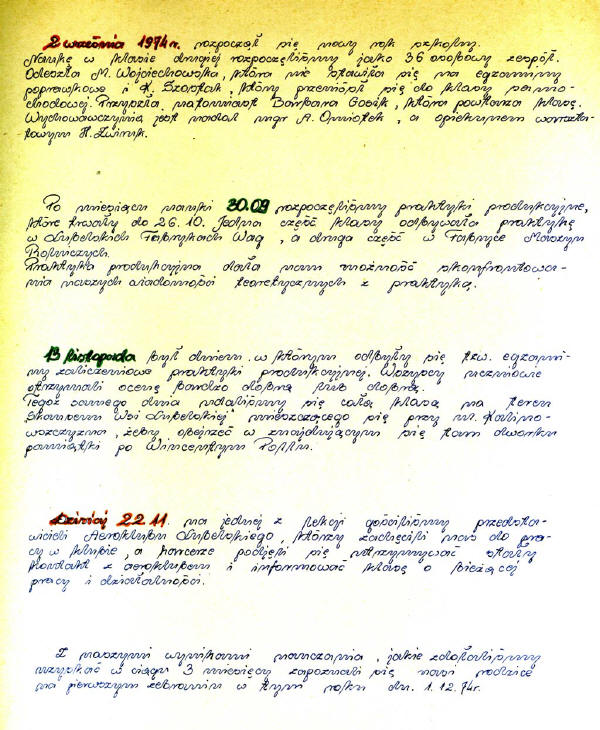 2 września 1974 r. rozpoczął się nowy rok szkolny.
Naukę w klasie drugiej rozpoczęliśmy jako 36 osobowy zespół.
Odeszła M. Wojciechowska, która nie stawiła się na egzaminy
poprawkowe i K. Szostak, który przeniósł się do klasy samo-
chodowej. Przyszła natomiast Barbara Gocik, która powtarza klasę.
Wychowawczynią jest nadal mgr A. Omiotek, a opiekunem warszta-
towym H. Zwinik.
Po miesiącu nauki 30.09 rozpoczęliśmy praktyki produkcyjne,
które trwały do 26.10. Jedna część klasy odbywała praktykę
w Lubelskich Fabrykach Wag, a druga część w Fabryce Maszyn
Rolniczych.
Praktyka produkcyjna dała nam możność skonfrontowa-
nia naszych wiadomości teoretycznych z praktyką.
13 listopada był dniem w którym odbyły się tzw. egzami-
ny zaliczeniowe praktyki produkcyjnej. Wszyscy uczniowie
otrzymali ocenę bardzo dobrą lub dobrą.
Tegoż samego dnia udaliśmy się całą klasą na teren
Skansenu Wsi Lubelskiej mieszczącego się przy ul. Kalino-
wszczyzna, żeby obejrzeć w znajdującym się tam dworku
pamiątki po Wincentym Pollu.
Dzisiaj 22 11. na jednej z lekcji gościliśmy przedsta-
wicieli Aeroklubu Lubelskiego, którzy zachęcili nas do pra-
cy w klubie, a harcerze podjęli się utrzymywać stały
kontakt z aeroklubem i informować klasę o bieżącej
pracy i działalności.
Z naszymi wynikami nauczania, jakie zdołaliśmy
uzyskać w ciągu 3 miesięcy zapoznali się nasi rodzice
na pierwszym zebraniu w tym roku dn. 1.12.74r.